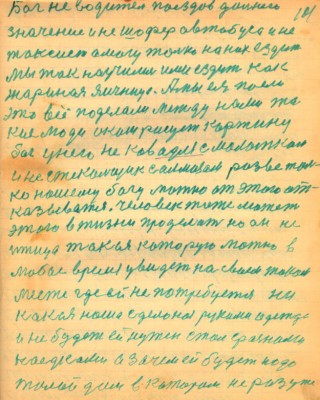 Бог не водител поездов дальнего 101
значение и не шофер автобуса и не
таксист а могу только на них ездит
мы так научили или ездит как
жареная яичница. А мы ея поели
это всё поделали между нами та
кие люди он нам рисует картину
бог у него не ковадел с молотком
и не стекольщик с алмазом разве тол
ко нашему богу можно от этого от
казыватя. Человек тоже может
этого в жизни проделать но он не
птица такая которую можно в
любое время увидет на своем таком
месте где ей не потребуется ни
какая наша сделоная руками одежда
и не будет ей нужен стол с разнами
а зачем ей будет надо
такой дом в котором не разуты